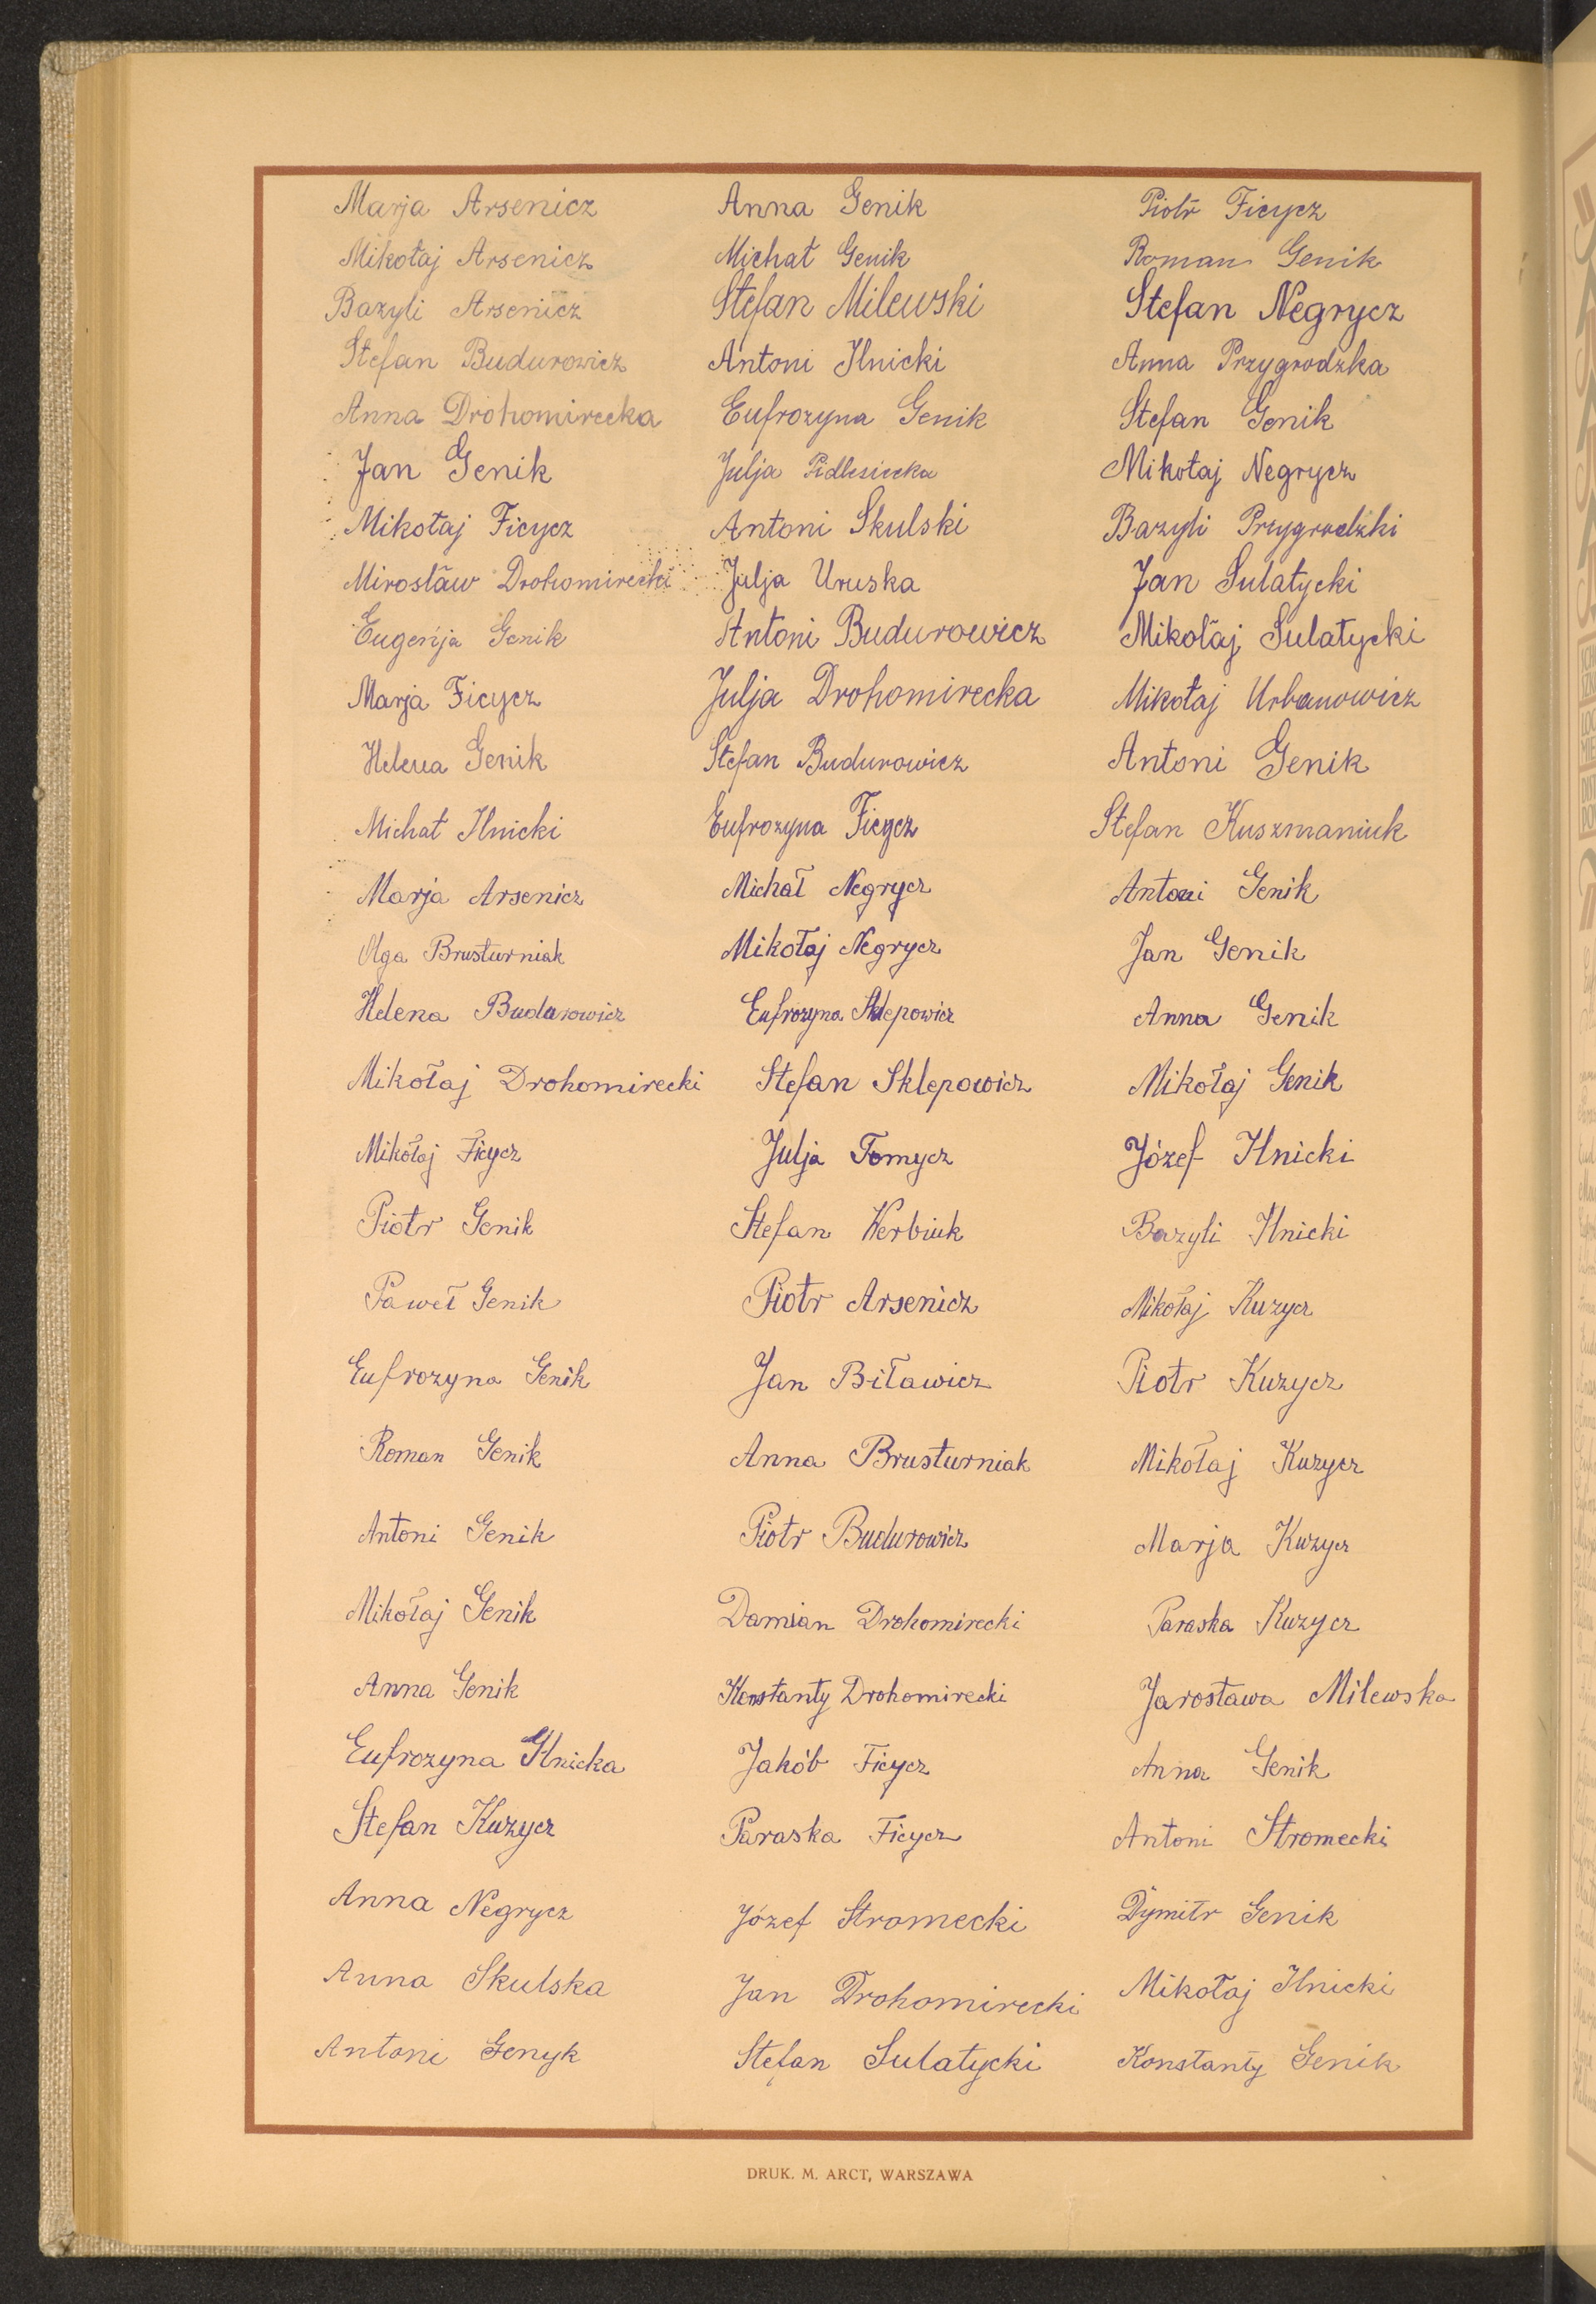 Marja Arsenicz
Mikołaj Arsenicz
Bazyli Arsenicz
Stefan Budurowicz
Anna Drohomirecka
Jan Genik
Mikołaj Ficycz
Mirosław Drohomirecki
Eugenja Genik
Marja Ficycz
Helena Genik
Michał Ilnicki
Marja Arsenicz
Olga Brusturniak
Helena Budurowicz
Mikołaj Drohomirecki
Mikołaj Ficycz
Piotr Genik
Paweł Genik
Eufrozyna Genik
Roman Genik
Antoni Genik
Mikołaj Genik
Anna Genik
Eufrozyna Ilnicka
Stefan Kuzycz
Anna Negrycz
Anna Skulska
Antoni Genyk
Anna Genik
Michał Genik
Stefan Milewski
Antoni Ilnicki
Eufrozyna Genik
Julja Pidlesiecka
Antoni Skulski
Julja Uruska
Antoni Budurowicz
Julja Drohomirecka
Stefan Budurowicz
Eufrozyna Ficycz
Michał Negrycz
Mikołaj Negrycz
Eufrozyna Sklepowicz
Stefan Sklepowicz
Julja Tomycz
Stefan Werbiuk
Piotr Arsenicz
Jan Biławicz
Anna Brusturniak
Piotr Budurowicz
Damian Drohomirecki
Konstanty Drohomirecki
Jakób Ficycz
Paraska Ficycz
Józef Stromecki
Jan Drohomirecki
Stefan Sulatycki
Piotr Ficycz
Roman Genik
Stefan Negrycz
Anna Przygrodzka
Stefan Genik
Mikołaj Negrycz
Bazyli Przygrodzki
Jan Sulatycki
Mikołaj Sulatycki
Mikołaj Urbanowicz
Antoni Genik
Stefan Kuszmaniuk
Antoni Genik
Jan Genik
Anna Genik
Mikołaj Genik
Józef Ilnicki
Bazyli Ilnicki
Mikołaj Kuzycz
Piotr Kuzycz
Mikołaj Kuzycz
Marja Kuzycz
Paraska Kuzycz
Jarosława Milewska
Anna Genik
Antoni Stromecki
Dymitr Genik
Mikołaj Ilnicki
Konstanty Genik
DRUK. M. ARCT, WARSZAWA